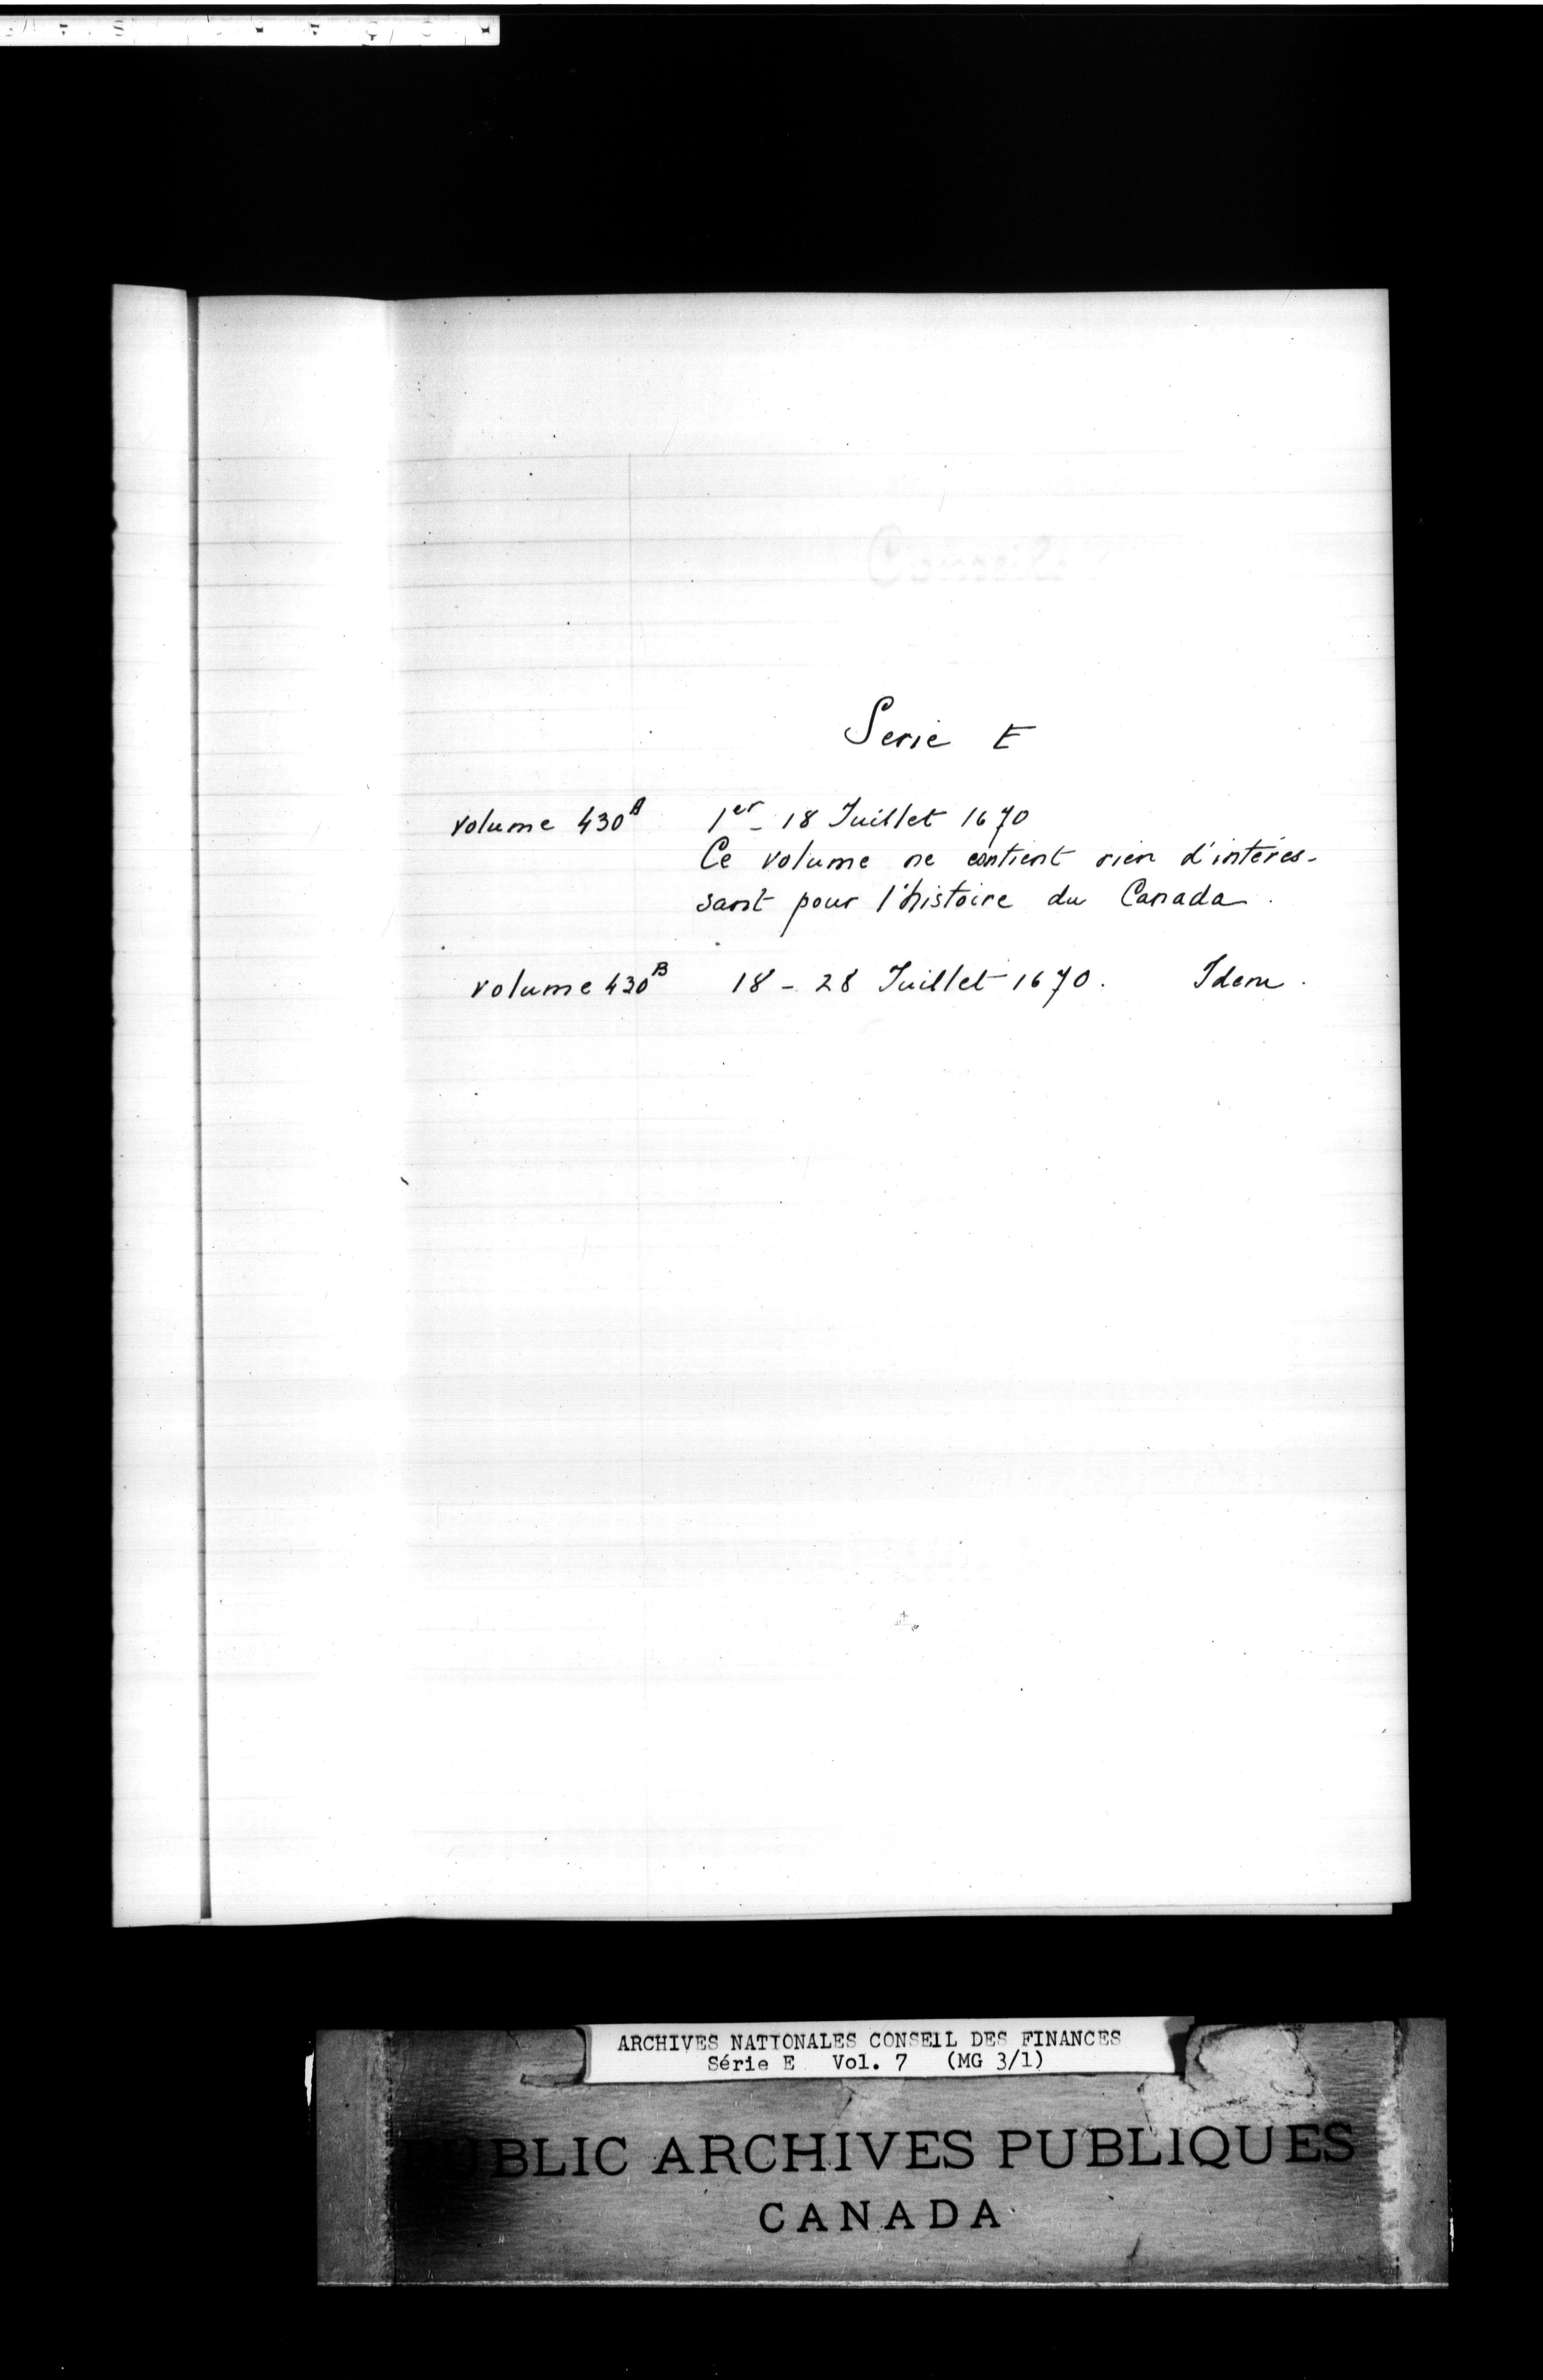 Serie E
volume 430A 1er - 18 Juillet 1670
Ce volume ne contient rien d'intéres-
sant pour l'histoire du Canada.
volume 430B 18 - 28 Juillet 1670. Idem.
ARCHIVES NATIONALES CONSEIL DES FINANCES
Série E Vol. 7 (MG 3/1)
PUBLIC ARCHIVES PUBLIQUES
CANADA